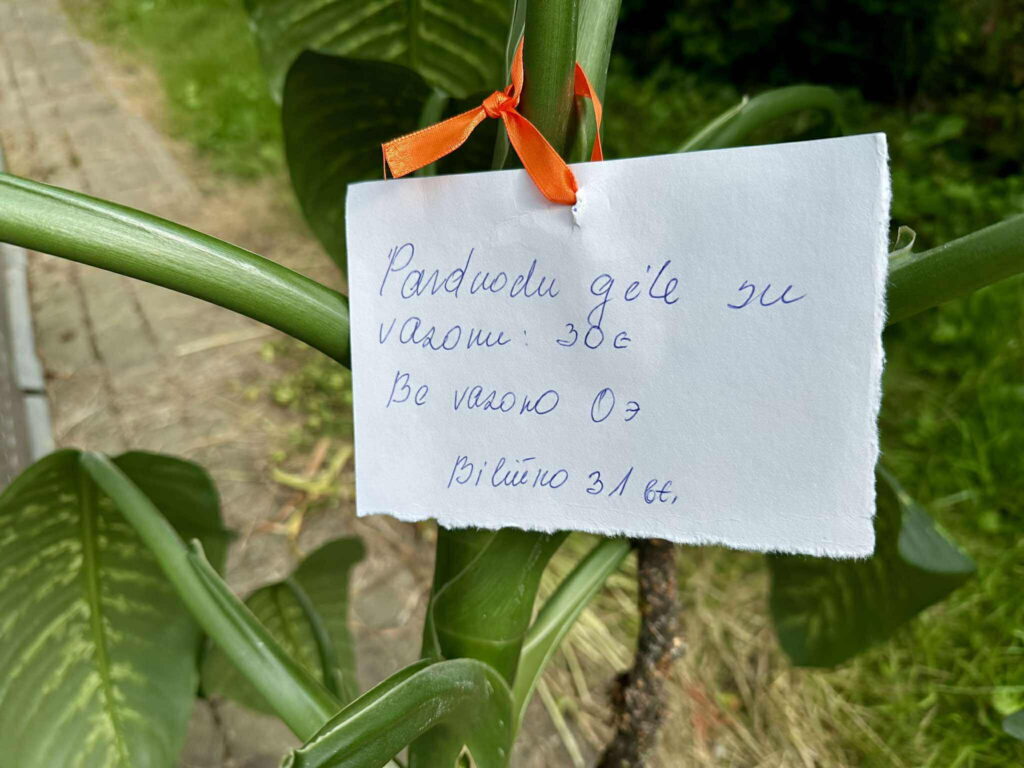 Parduodu gėlę su
vazonu: 30€
Be vazono 0э
Biliūno 31 bt.